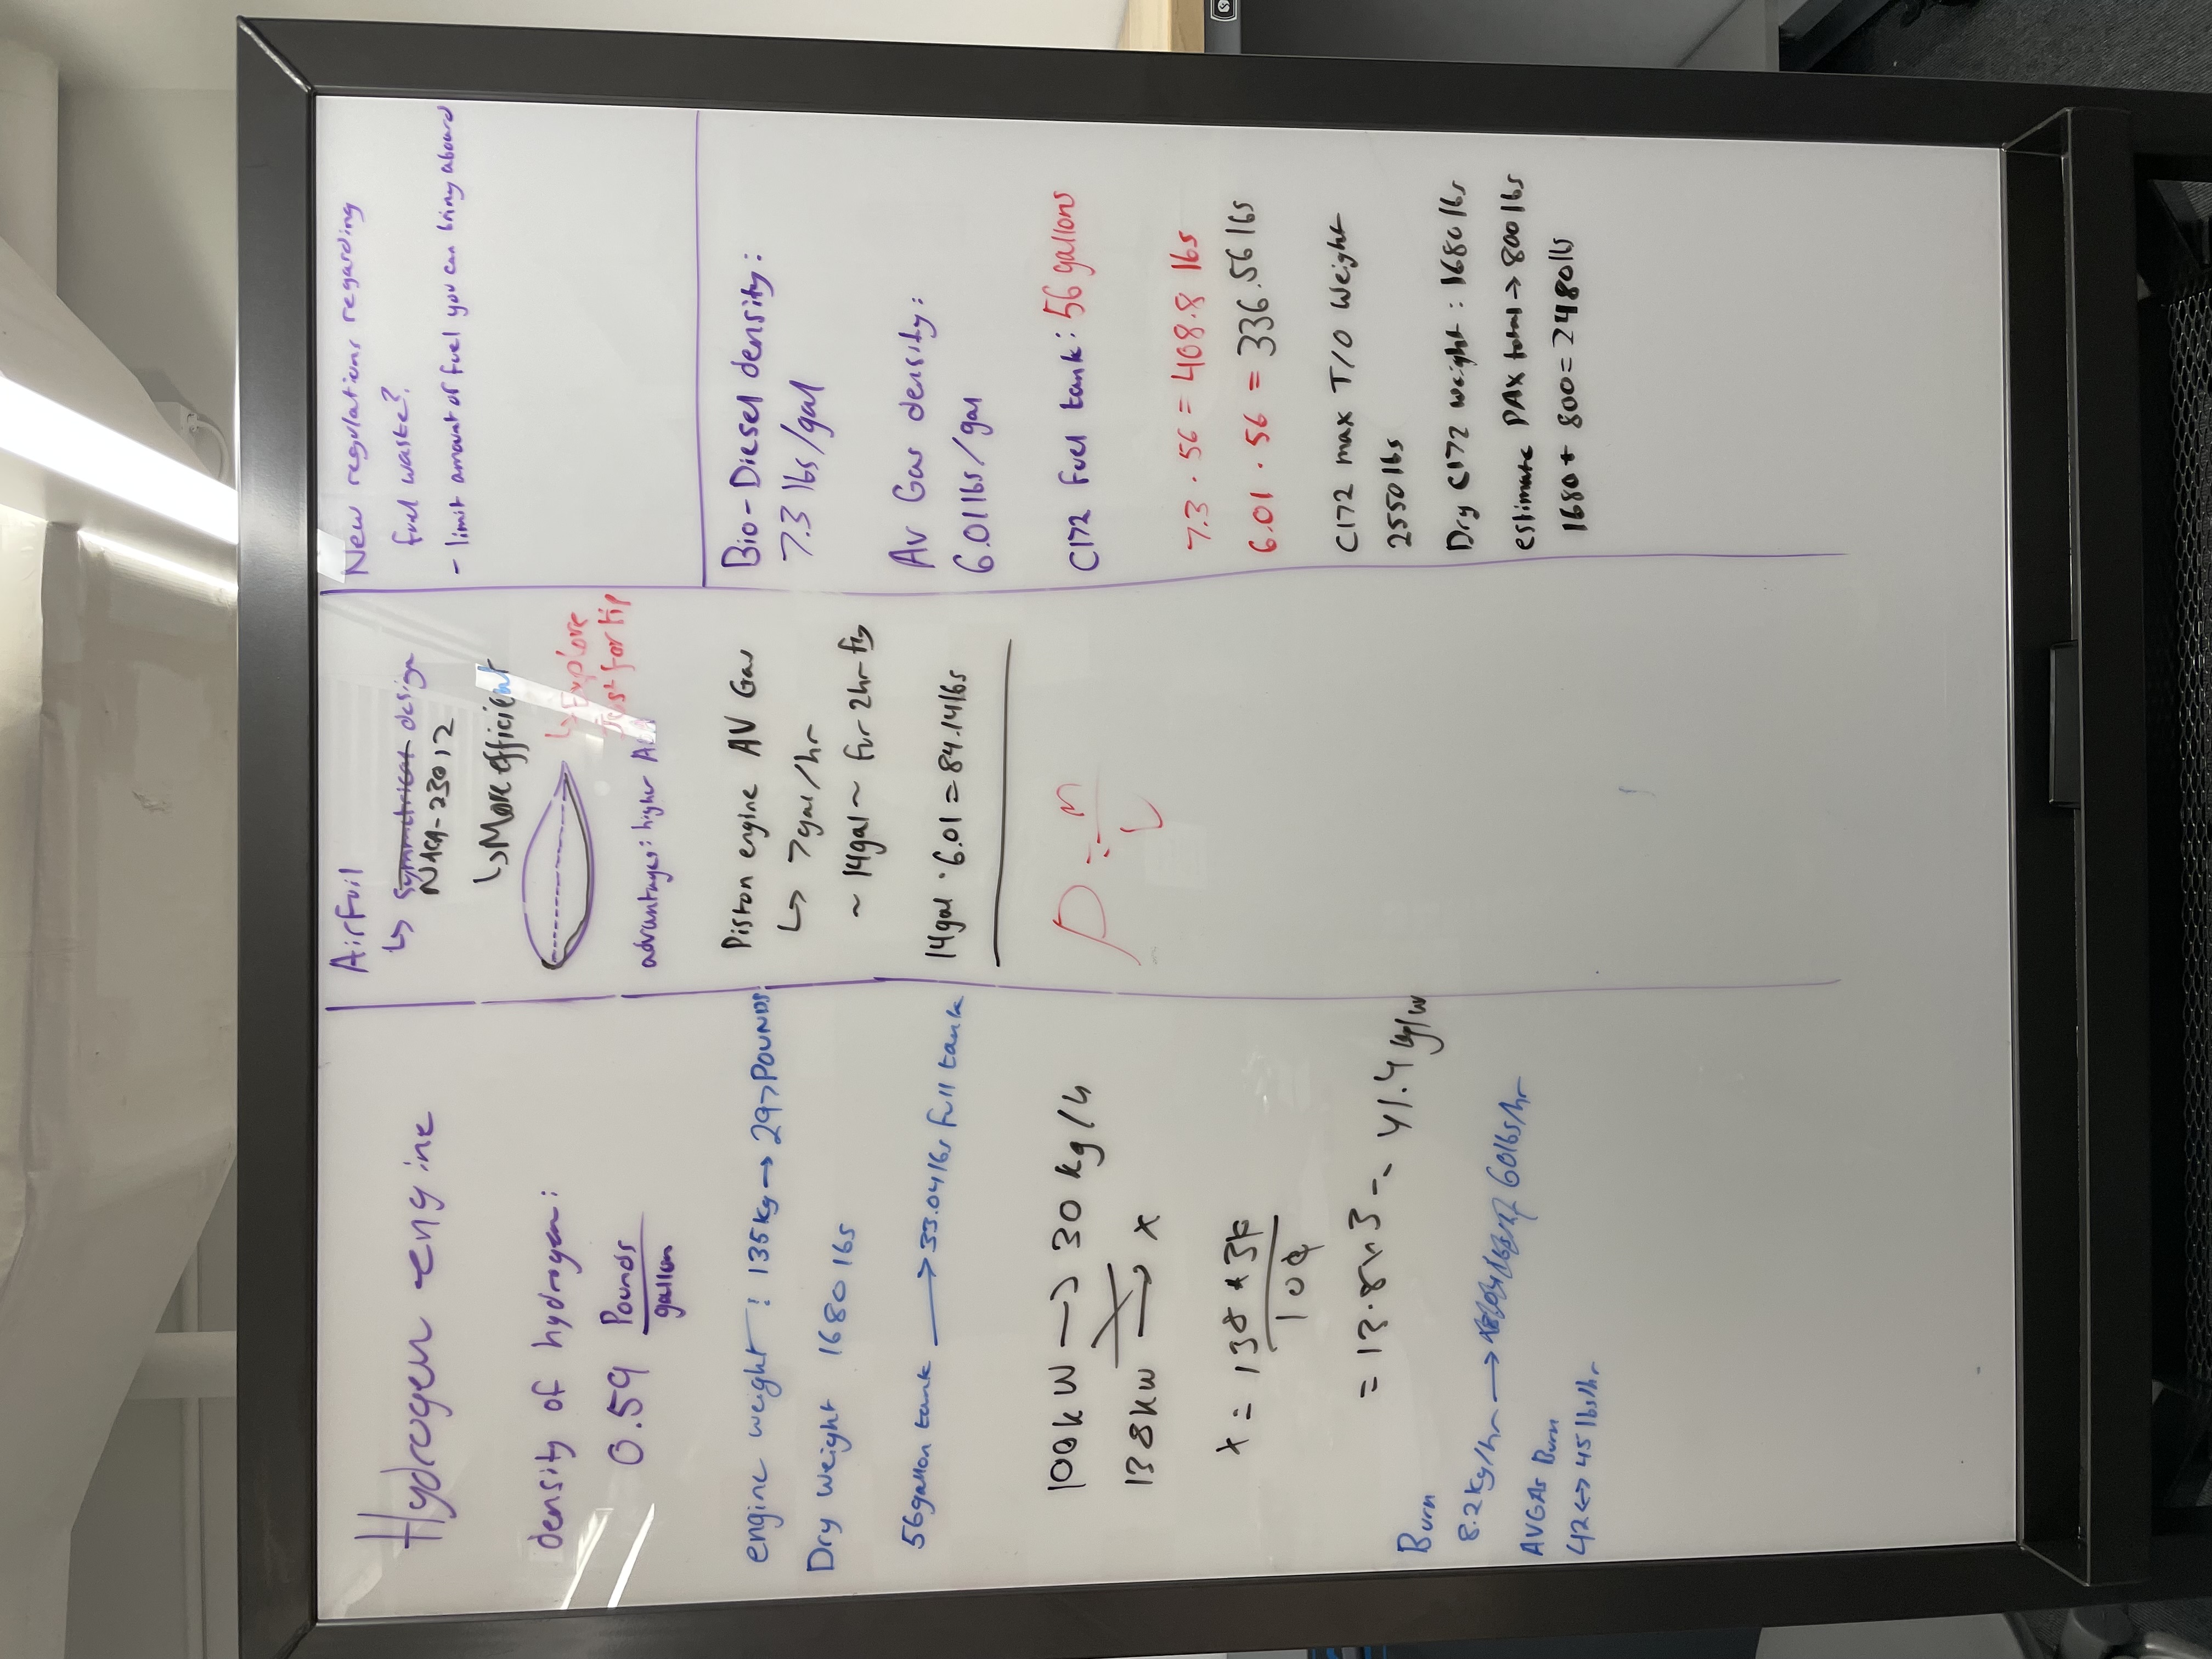 Hydrogen engine
density of hydrogen:
0.59 Pounds
gallon
engine weight: 135kg → 297 POUNDS
Dry weight 1680 lbs
56 gallon tank → 33.04 lbs full tank
100kW → 30 kg/h
138kW → x
x = 138 * 30
100
= 13.8 x 3 = 41.4
Burn
8.2 kg/hr → 60 lbs/hr
AVGAS Burn
42 ↔ 45 lbs/hr
Airfoil
↳ symmetrical design
NACA-23012
↳ More efficient
↳ Explore
for trip
advantages: higher
Piston engine AV Gas
↳ 7gal/hr
~ 14gal ~ for 2hr
14gal · 6.01 = 84.14 lbs
New regulations regarding
fuel waste?
- limit amount of fuel you can bring aboard
Bio-Diesel density:
7.3 lbs/gal
AV Gas density:
6.01 lbs/gal
C172 Fuel tank: 56 gallons
7.3 · 56 = 408.8 lbs
6.01 · 56 = 336.56 lbs
C172 max T/O Weight
2550 lbs
Dry C172 weight: 1680 lbs
estimate PAX total → 800 lbs
1680 + 800 = 2480 lb